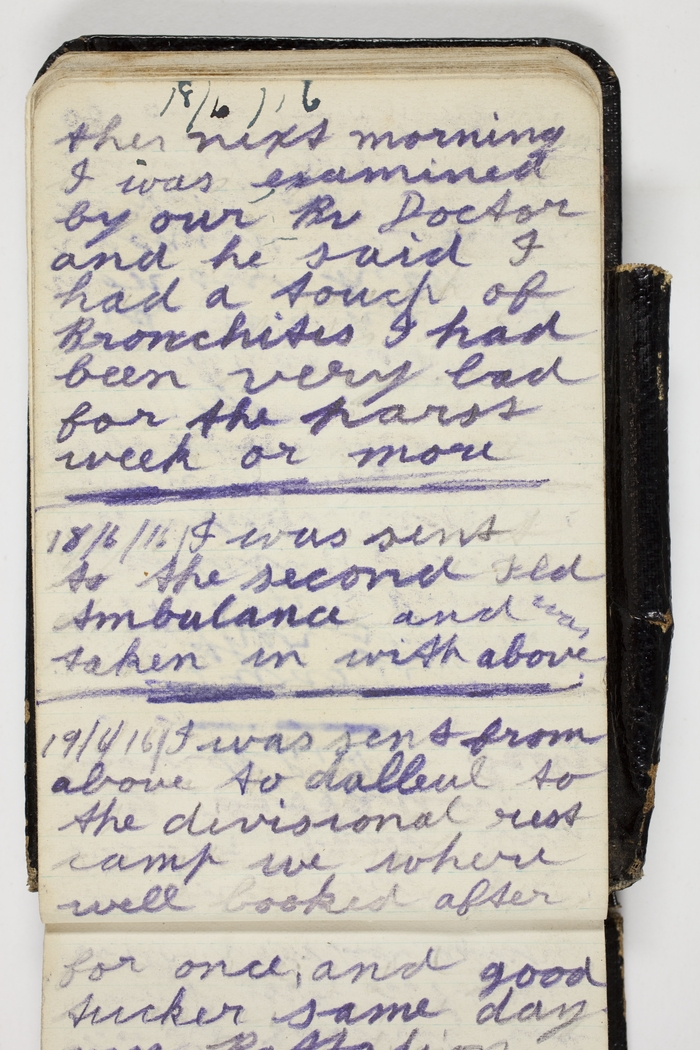 18/6/16
ther next morning
I was examined
by our Rv Doctor
and he said I
had a touch of
Bronchites I had
been very bad
for the parst
week or more
18/6/16 I was sent
to the second Fld
Ambulance and was
taken in with above
19/6/16 I was sent from
above to dalleul to
the divisional rest
camp we where
well looked after
for once, and good
tucker same day